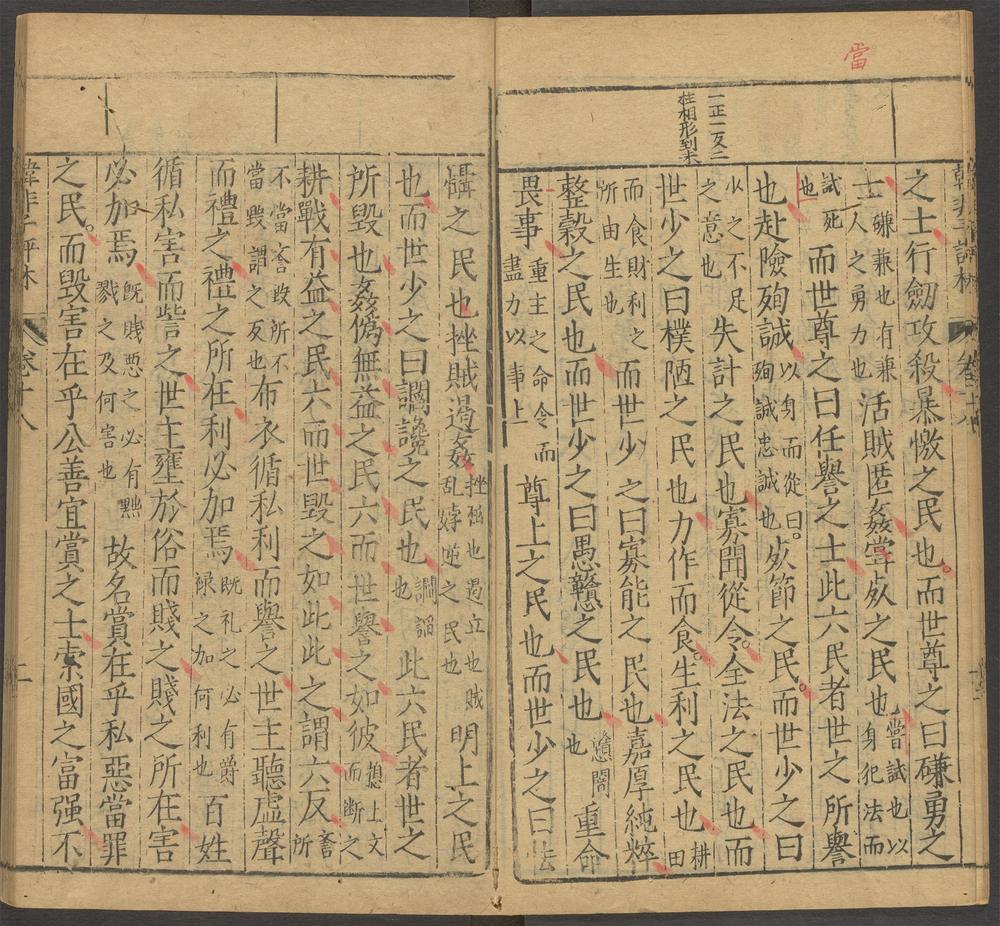 當
一正一反二
柱相形到末
韓非子評林 卷十八
之士行劒攻殺暴憿之民也。而世尊之曰磏勇之
士磏兼也有兼人之勇力也活賊匿姦當死之民也甞試也以身犯法而
試死也而世尊之曰任譽之士此六民者世之所譽
也赴險殉誠以身而從曰。殉誠忠誠也死節之民。而世少之曰
少之不足之意也失計之民也寡聞從令。全法之民也而
世少之曰樸陋之民也力作而食。生利之民也耕田
而食財利之所由生也而世少之曰寡能之民也嘉厚純粹
整穀之民也而世少之曰愚戇之民也戇闇也重命
畏事重主之命令而盡力以事上尊上之民也而世少之曰怯
懾之民也挫賊遏姦挫也遏立也賊乱孛逆之民也明上之民
也而世少之曰讇讒之民也讇謟也此六民者世之
所毀也姦偽無益之民六而世譽之如彼聽上文而斷之
耕戰有益之民六而世毀之如此此之謂六反所
不當毀所不當毀謂之反也布衣循私利而譽之世主聽虛聲
而禮之禮之所在利必加焉既礼之必有爵禄之加何利也百姓
循私害而訾之世主壅於俗而賤之賤之所在害
必加焉既賤惡之必有黜戮之及何害也故名賞在乎私惡當罪
之民。而毀害在乎公善宜賞之士索國之富强不
韓非子評林 卷十八